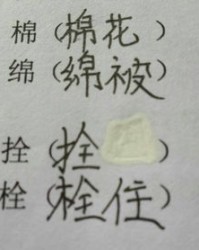 棉（棉花）
绵（绵被）
拴（拴  ）
栓（栓住）